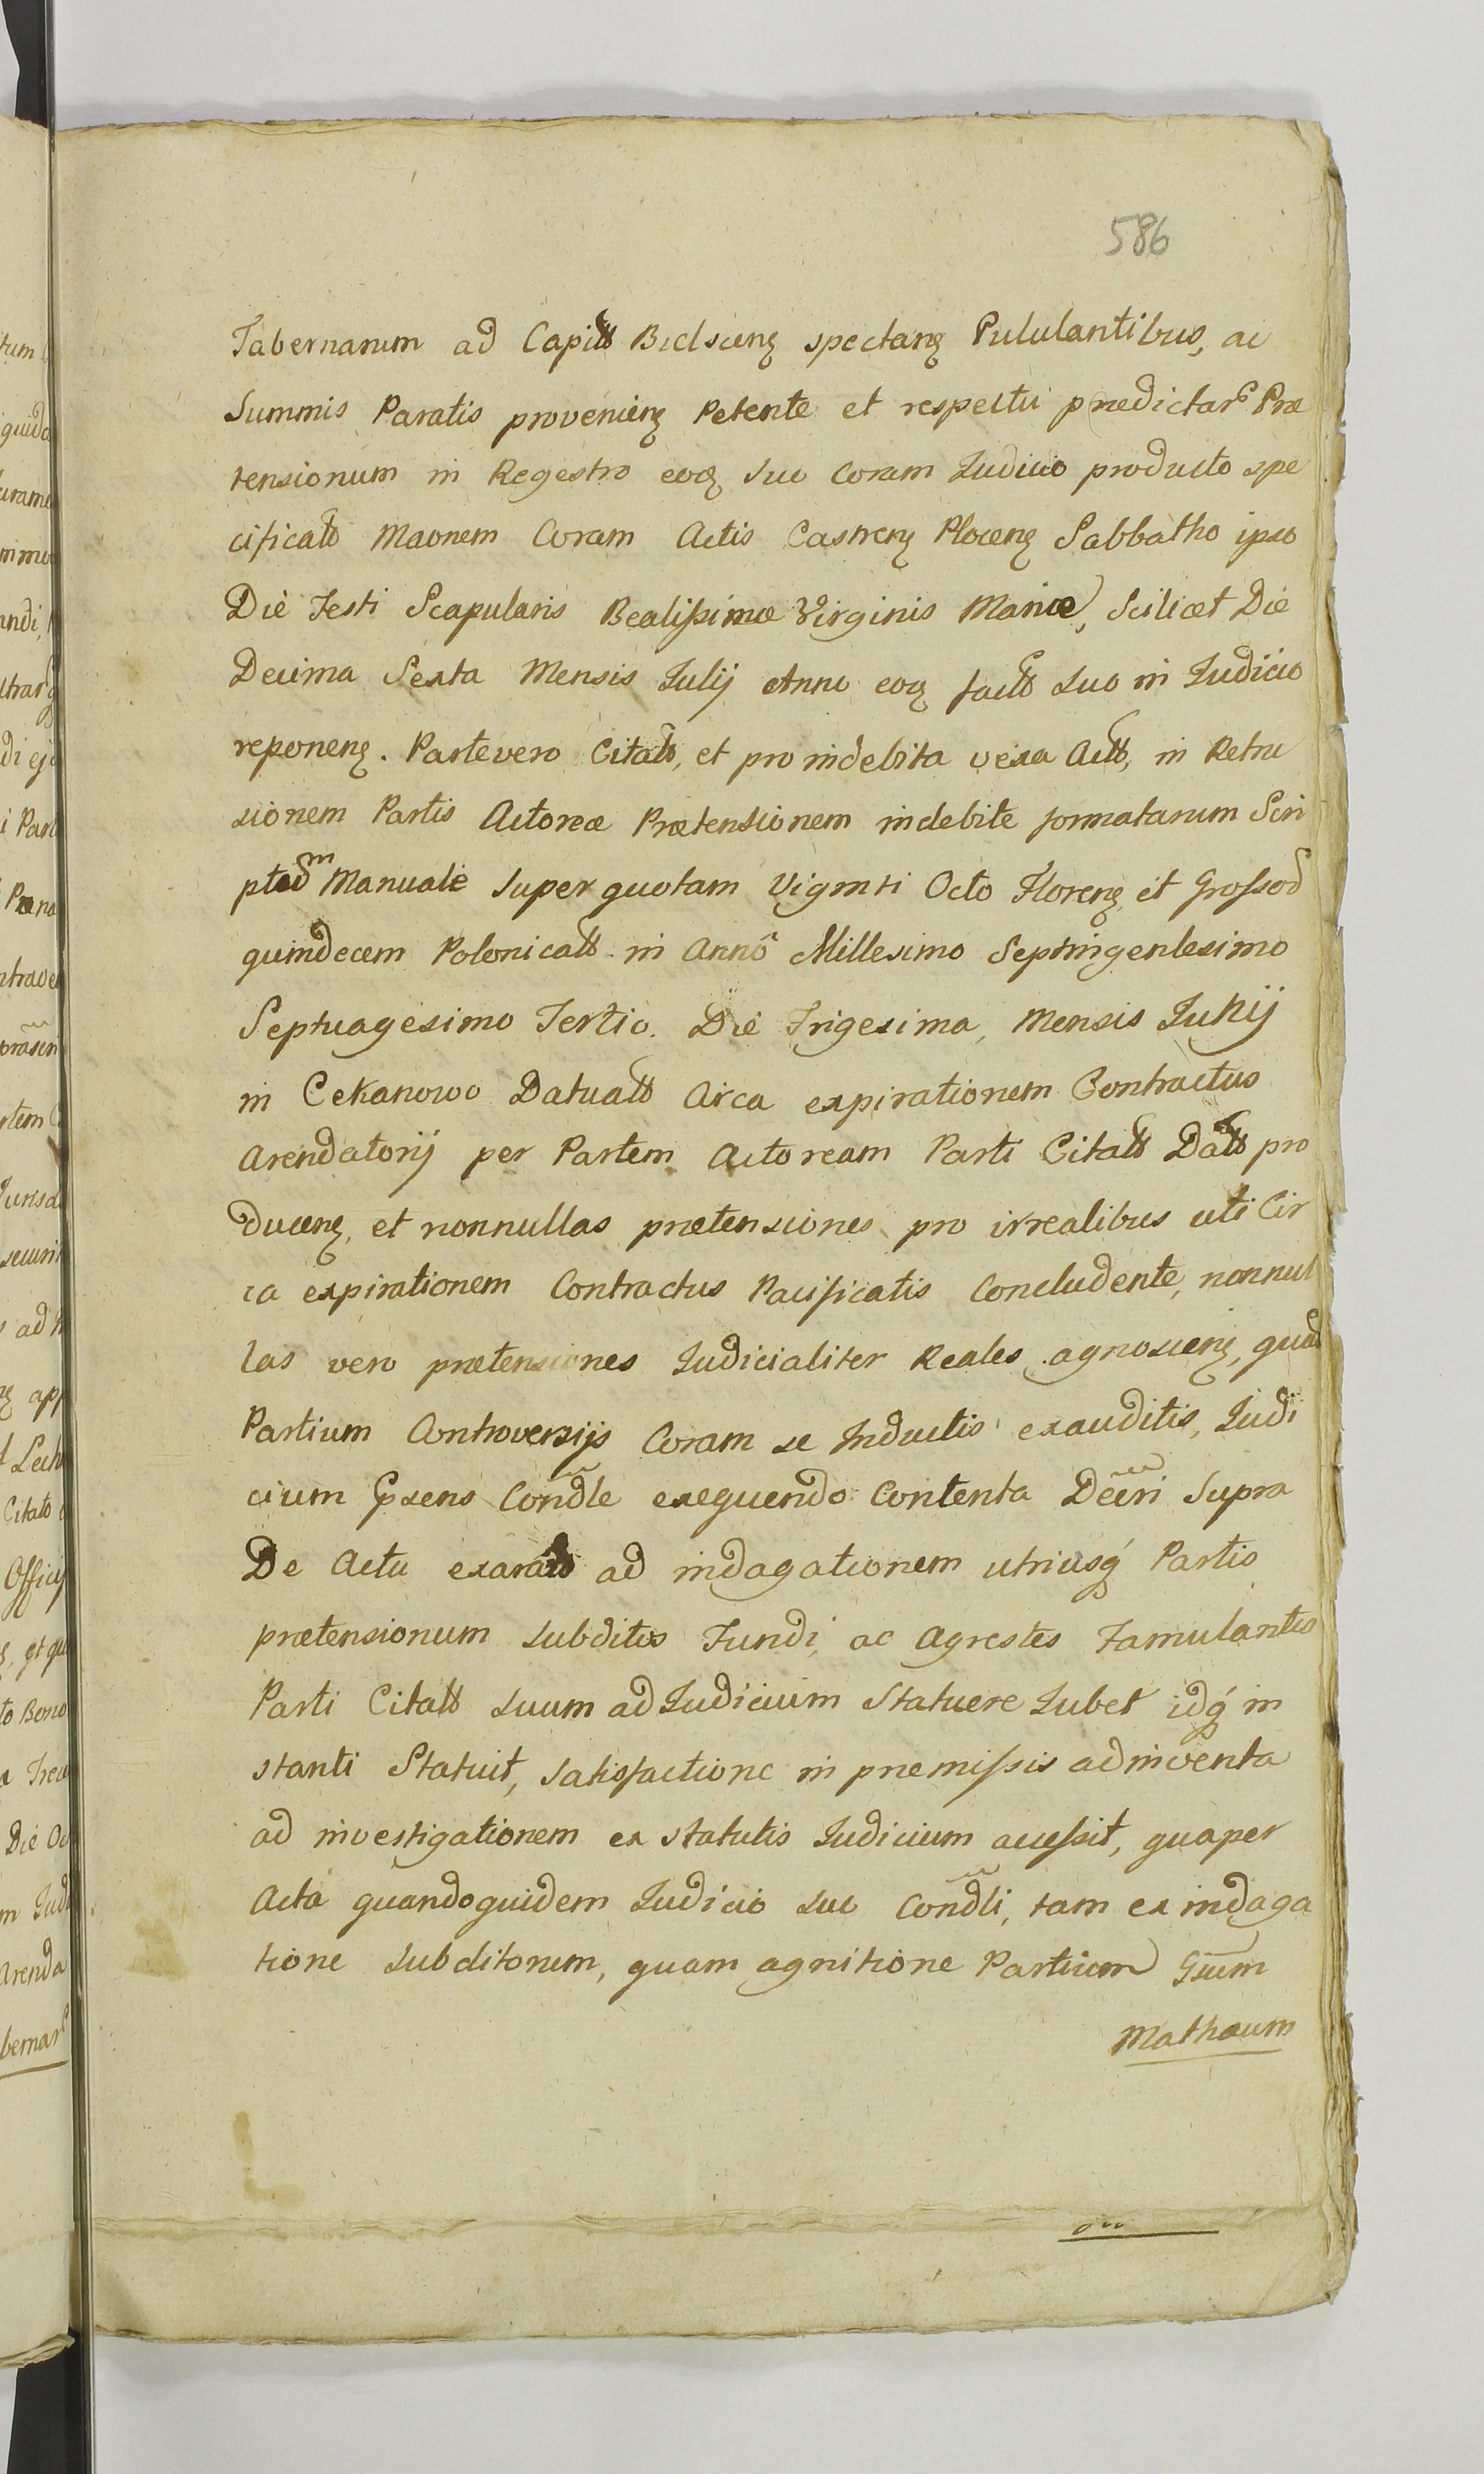 586
Tabernarum ad Capitt Bielscenꝫ spectanꝫ Pululantibus, ac
Summis Paratis provenienꝫ Petente et respectu prædictarꝭ Præ
tensionum in Regestro eoꝫ suo Coram Iudicio producto spe
cificatt Maonem Coram Actis Castrenꝫ Plocenꝫ Sabbatho ipso
Die Festi Scapularis Beatissimæ Virginis Mariæ, Scilicet Die
Decima Sexta Mensis Iulij Anno eoꝫ factt suo in Iudicio
reponenꝫ. Parte vero Citatt, et pro indebita vexa Actt, in Retru
sionem Partis Actoreæ Prætensionem indebite formatarum Scri
ptad̃m Manuale super quotam Viginti Octo Florenꝫ et Grossoꝭ
quindecem Polonicatt in Annô Millesimo Septingentesimo
Septuagesimo Tertio. Die Trigesima, Mensis Iunij
in Cekanowo Datuatt Circa expirationem Contractus
Arendatorij per Partem Actoream Parti Citatt Datt pro
ducenꝫ, et nonnullas prætensiones pro irrealibus uti Cir
ca expirationem Contractus Pacificatis Concludente, nonnul
las vero prætensiones Iudicialiter Reales agnoscenꝫ, quaꝭ
Partium Controversijs Coram se Inductis exauditis, Iudi
cium Pꝛsens Cond̃le exequendo Contenta Dec̃ri supra
De Actu exaratt ad indagationem utriusq́ Partis
prætensionum subditos Fundi, ac Agrestes Famulantes
Parti Citatt suum ad Iudicium Statuere Iubet idq́ in
stanti Statuit, satisfactione in præmissis adinventa
ad investigationem ex statutis Iudicium accessit, qua per
Acta quandoquidem Iudicio suo Cond̃li, tam ex indaga
tione subditorum, quam agnitione Partium Gsum
Mathæum